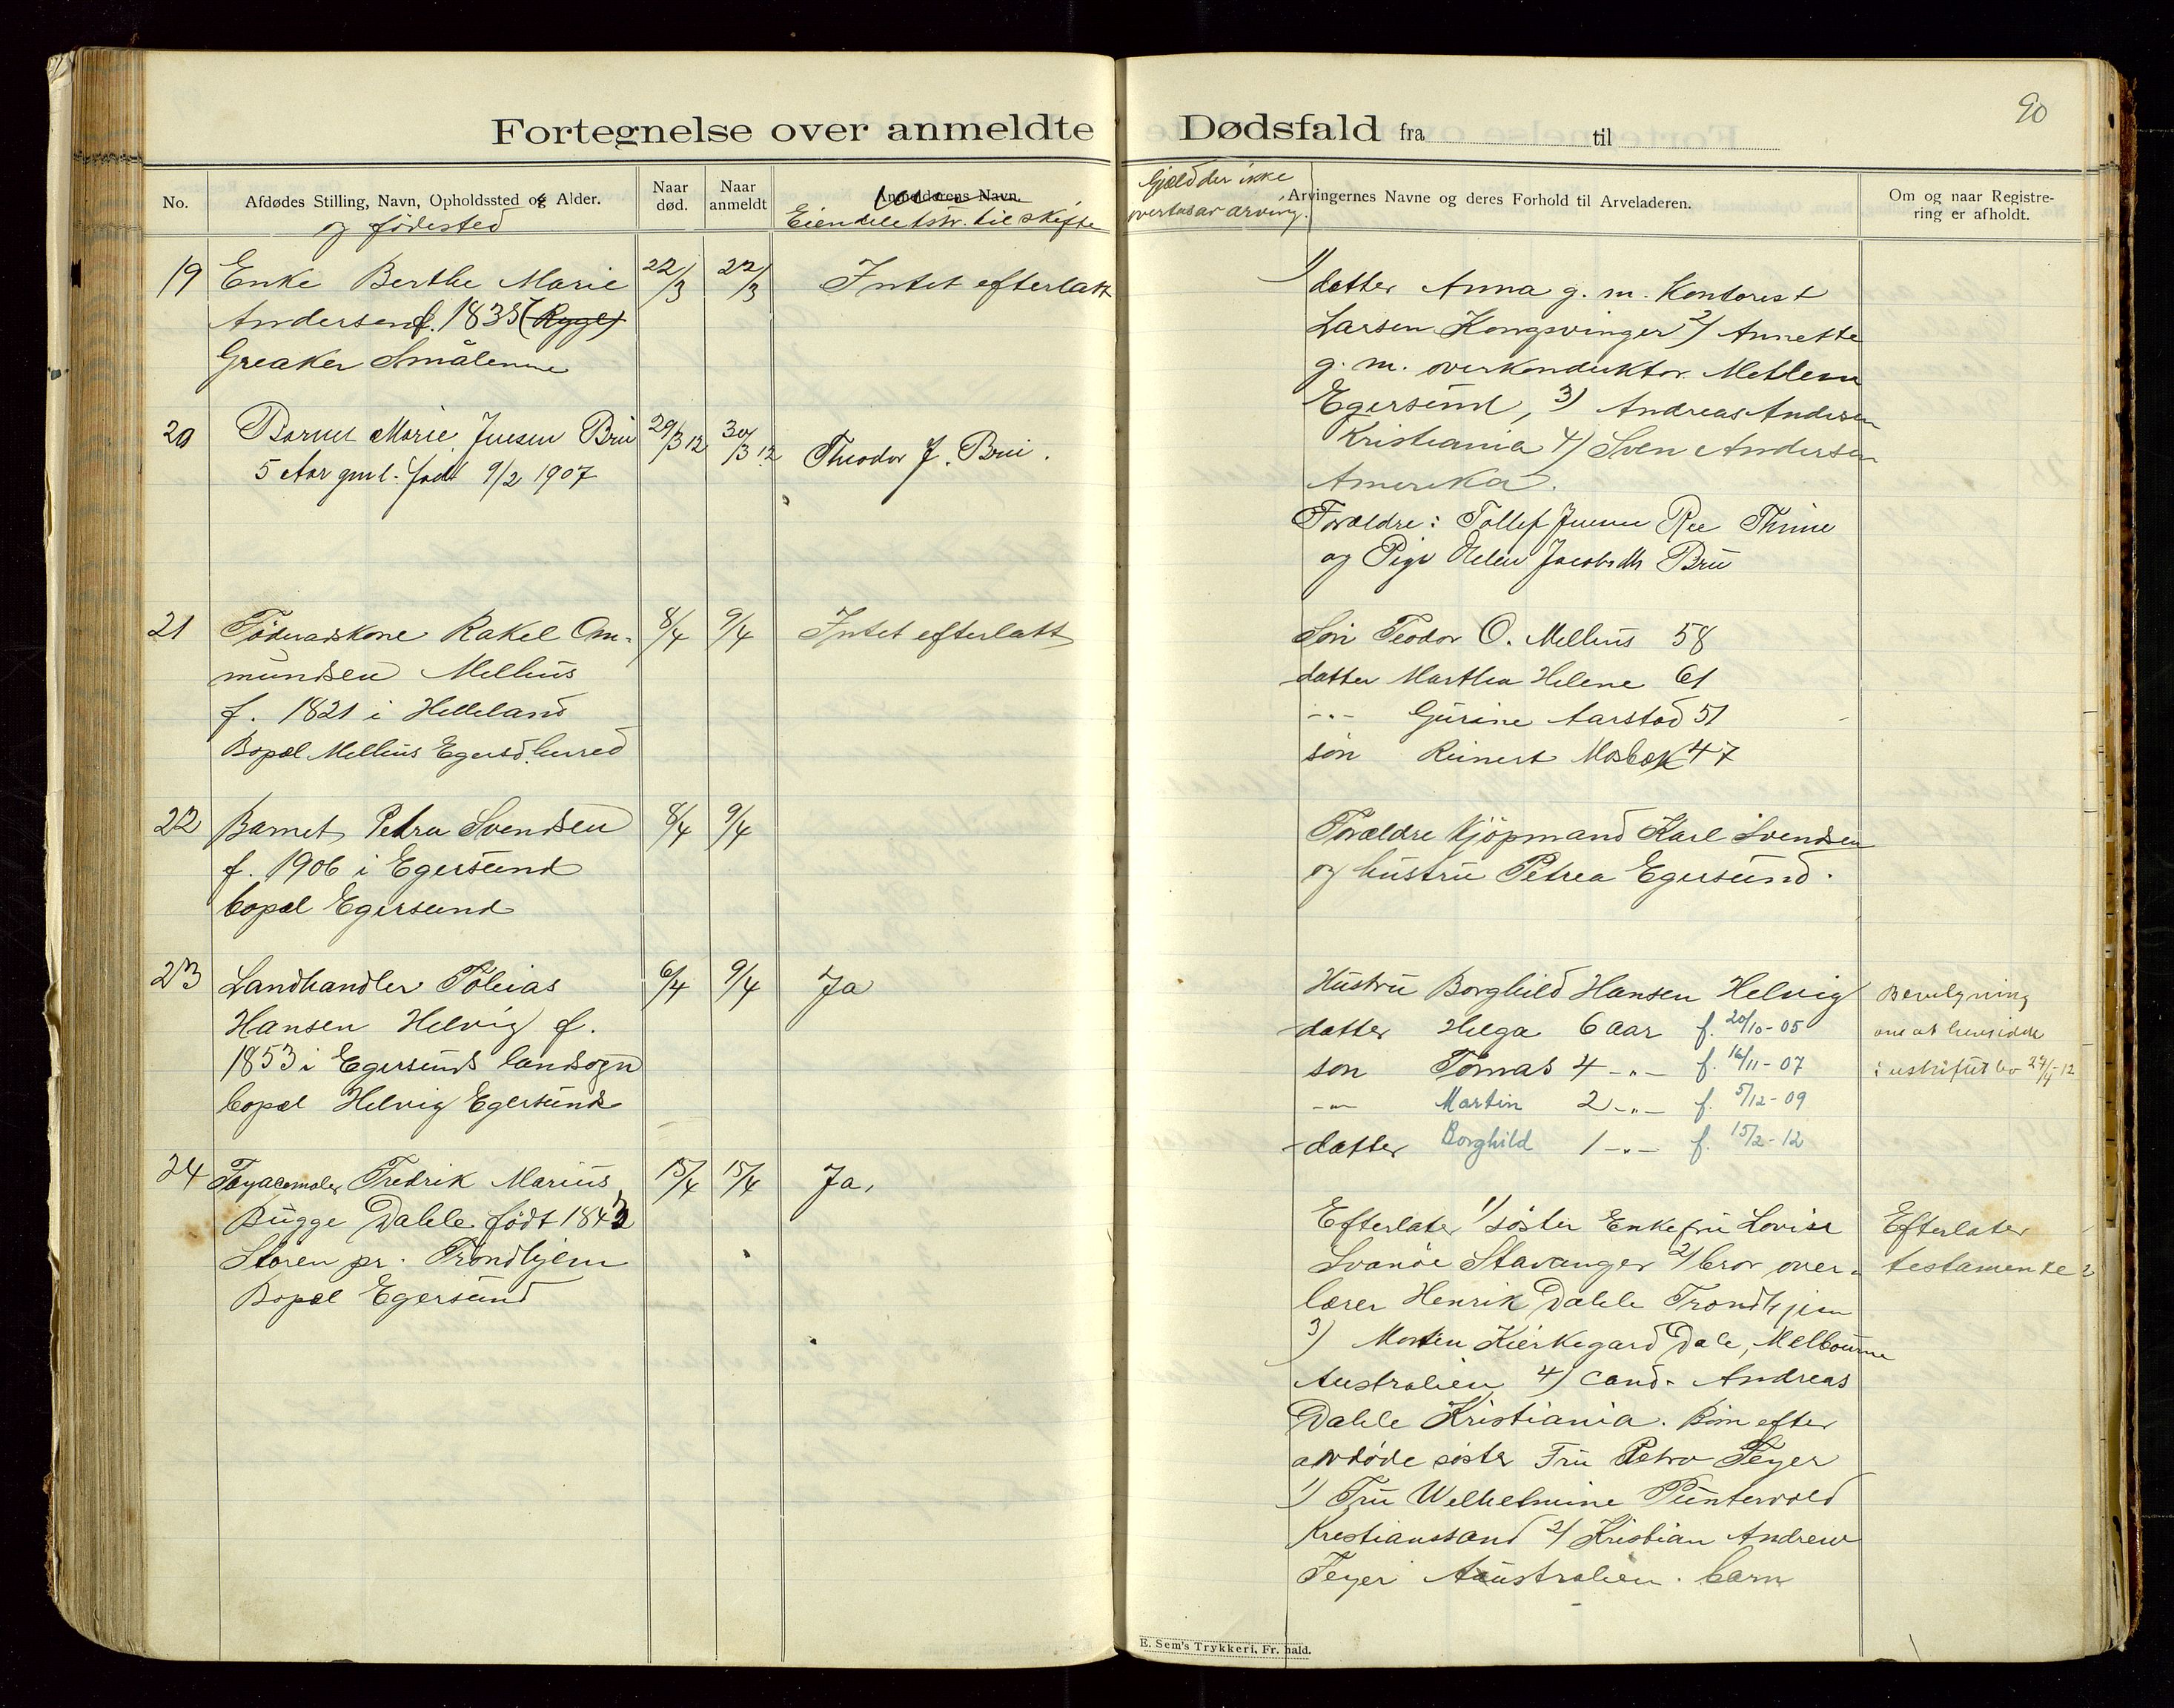 90
Fortegnelse over anmeldte Dødsfald fra til
No.
Afdødes Stilling, Navn, Opholdssted og Alder.
og födested
Naar
død.
Naar
anmeldt
Anmelderens Navn.
Eiendele tstr. til skifte
Gjæld der ikke
overtas av arving.
Arvingernes Navne og deres Forhold til Arveladeren.
Om og naar Registre-
ring er afholdt.
19 Enke Berthe Marie 22/3 22/3 Intet efterlatt
Andersen f. 1835 (Rygge)
Greaker Smålenene
1) datter Anna g. m. Kontorist
Larsen Kongsvinger 2) Annette
g. m. overkonduktör
Egersund, 3) Andreas Andersen
Kristiania 4) Sven Andersen
Amerika.
20 Barnet Marie Jensen Bru 29/3 12 30/3 12 Theodor J. Bru.
5 Aar gml. født 9/2 1907
Forældre: Tollef Jensen Ree Thime
og Pige Helen Jacobsdt Bru
21 Föderadskone Rakel Om- 8/4 9/4 Intet efterlatt
mundsen Mellius
f. 1821 i Helleland
Bopæl Mellius Egersd. herred
Sön Teodor O. Mellius 58
datter Marthea Helene 61
-"- Gurine Aarstad 51
sön Reinert Mosbæk 47
22 Barnet Petra Svendsen 8/4 9/4
f. 1906 i Egersund
bopæl Egersund
Forældre Kjöpmand Karl Svendsen
og hustru Petrea Egersund.
23 Landhandler Tobias 6/4 9/4 Ja
Hansen Helvig f.
1853 i Egersunds landsogn
bopæl Helvig Egersund
Hustru Borghild Hansen Helvig
datter Helga 6 aar f. 20/10-05
sön Tomas 4 -"- f. 16/11-07
-"- Martin 2 -"- f. 5/12-09
datter Borghild 1 -"- f. 15/2-12
Bevilgning
om at hensidde
i uskiftet bo 27/4-12
24 Fredrik Marius 15/4 15/4 Ja.
Bugge Dahle født 1843
Støren pr. Trondhjem
Bopæl Egersund
Efterlater 1) söster Enkefru Lovise
Svanöe Stavanger 2) bror over-
lærer Henrik Dahle Trondhjem
3) Morten Kierkegard Dale, Melbourne
Australien 4) cand. Andreas
Dahle Kristiania. Börn efter
avdöde söster Fru Petra Feyer
1) Fru Welhelmine Puntervold
Krestianssand 2) Kristian Andrew
Feyer Australien. barn
Efterlater
testamente
E. Sem's Trykkeri, Fr.hald.